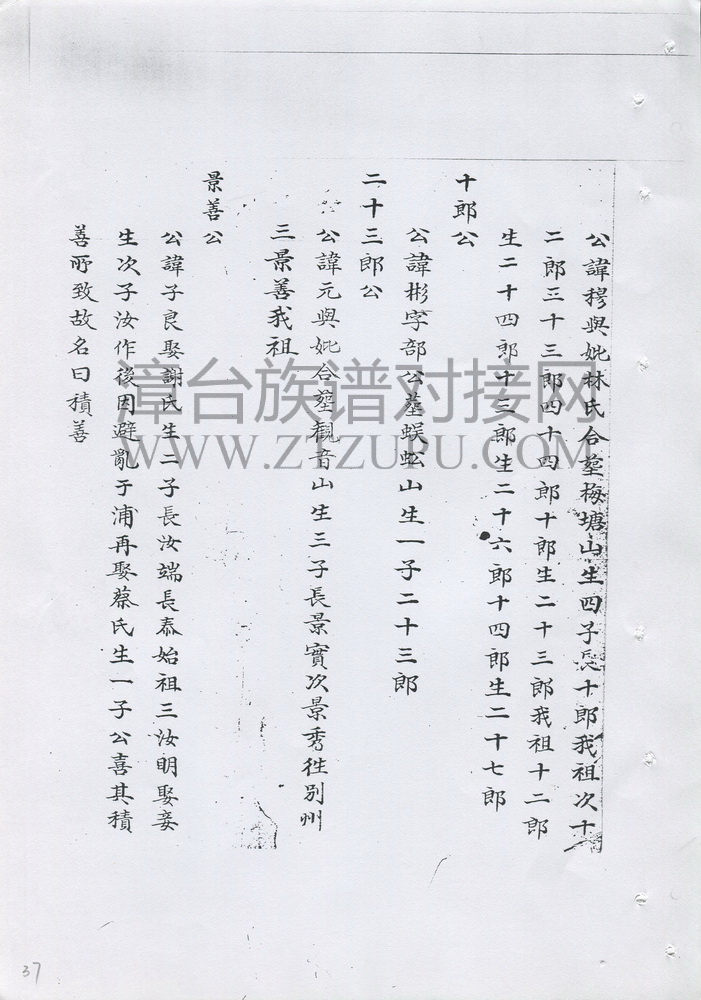 公諱穆與妣林氏合塟梅塘山生四子長十郎我祖次十
二郎三十三郎四十四郎十郎生二十三郎我祖十二郎
生二十四郎十三郎生二十六郎十四郎生二十七郎
十郎公
公諱彬字部公塟蜈蚣山生一子二十三郎
二十三郎公
公諱元與妣合塟觀音山生三子長景實次景秀徃別州
三景善我祖
景善公
公諱子良娶謝氏生二子長汝端長泰始祖三汝明娶妾
生次子汝作後因避亂于浦再娶蔡氏生一子公喜其積
善所致故名曰積善
漳台族谱对接网
WWW.ZTZUPU.COM
37